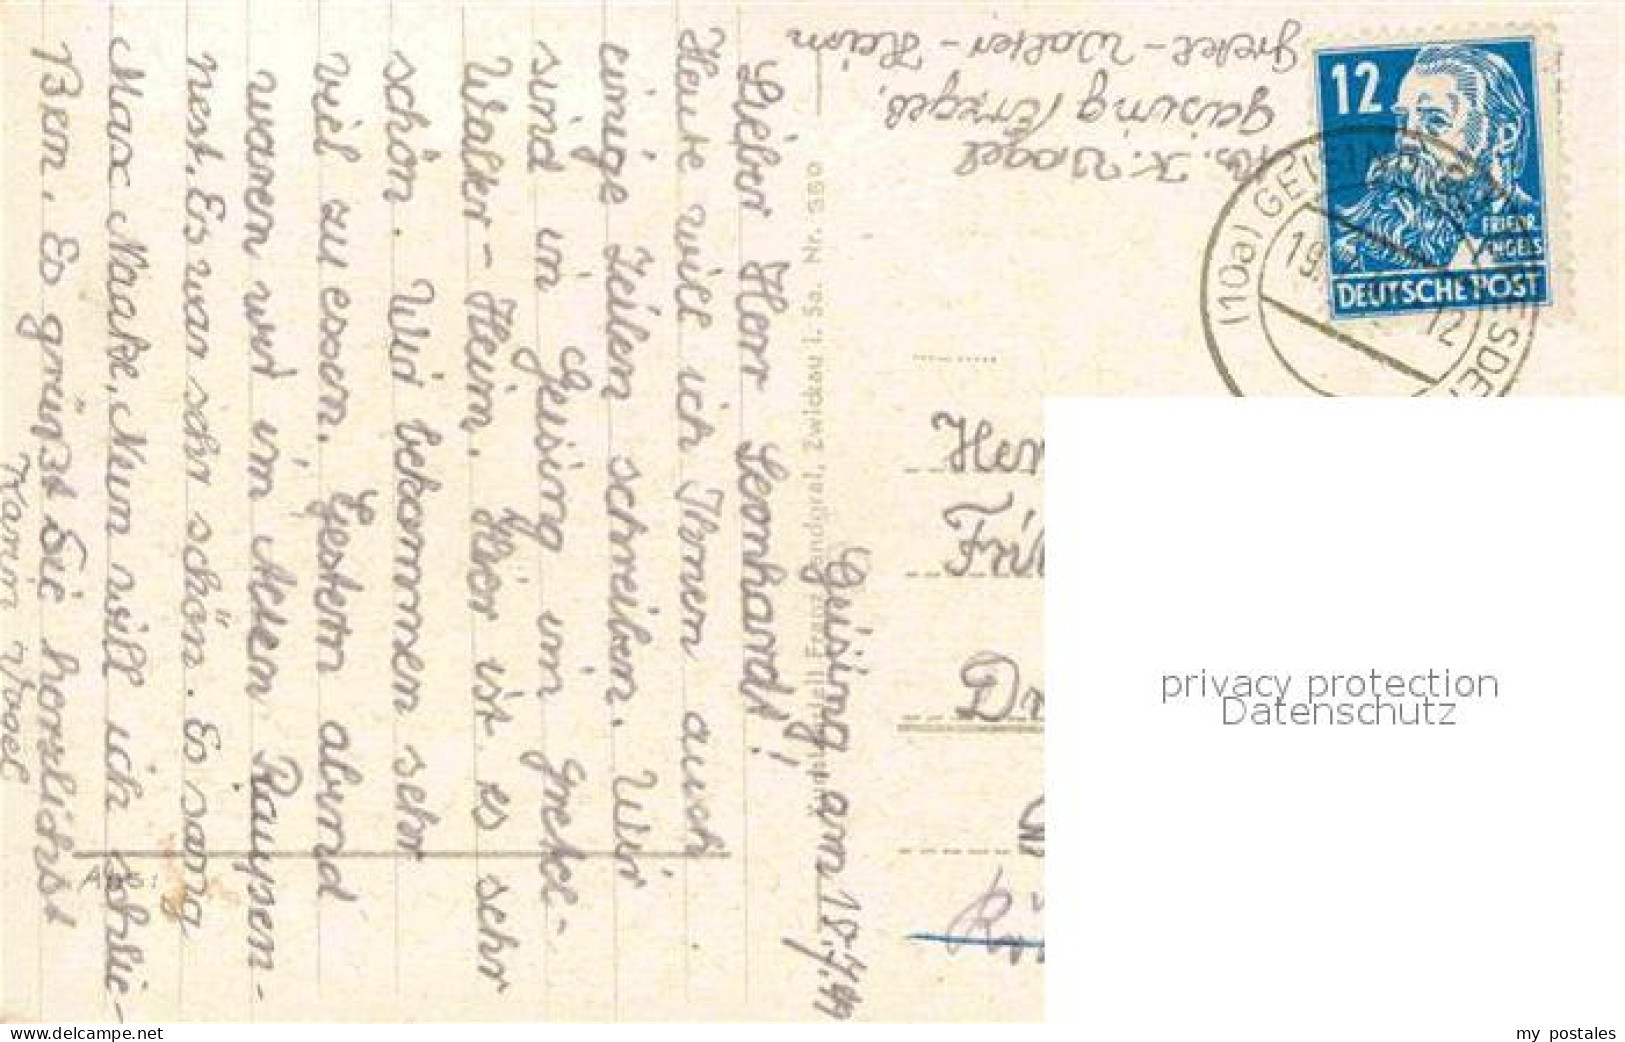 Geising, am 18.7.49
Lieber Herr Leonhardt!
Heute will ich Ihnen auch
einige Zeilen schreiben. Wir
sind in Geising im Gretel-
Walter-Heim. Hier ist es sehr
schön. Wir bekommen sehr
viel zu essen. Gestern abend
waren wir im Aten Raupen-
nest. Es war sehr schön. Es sang
Max Naake. Nun will ich schlie-
ßen. Es grüßt Sie herzlichst
Karin Vogel
Abs. K. Vogel
Geising/Erzgeb.
Gretel-Walter-Heim
Landgraf, Zwickau i. Sa. Nr. 380
12
FRIEDR
ENGELS
DEUTSCHE POST
(10a) GEISING
19
12
Her
Dr
privacy protection
Datenschutz
www.delcampe.net
my_postales